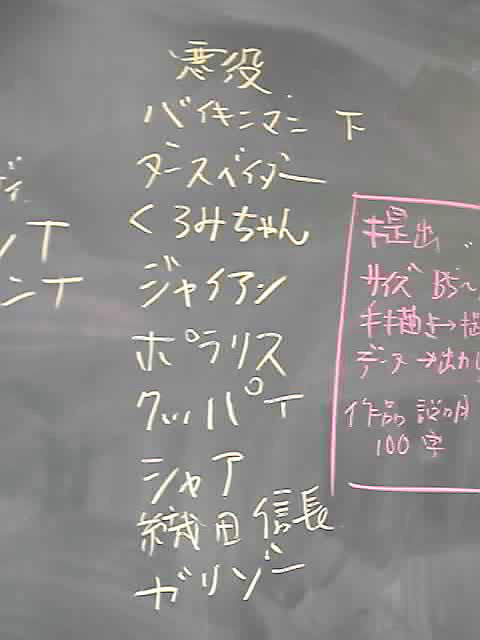 悪役
バイキンマン 下
ダースベイダー
くろみちゃん
ジャイアン
ポラリス
クッパ T
シャア
織田信長
ガリゾー
ディ
ンT
ンT
提出
サイズ B5〜
手描き→
データ→出力
作品説明
100字